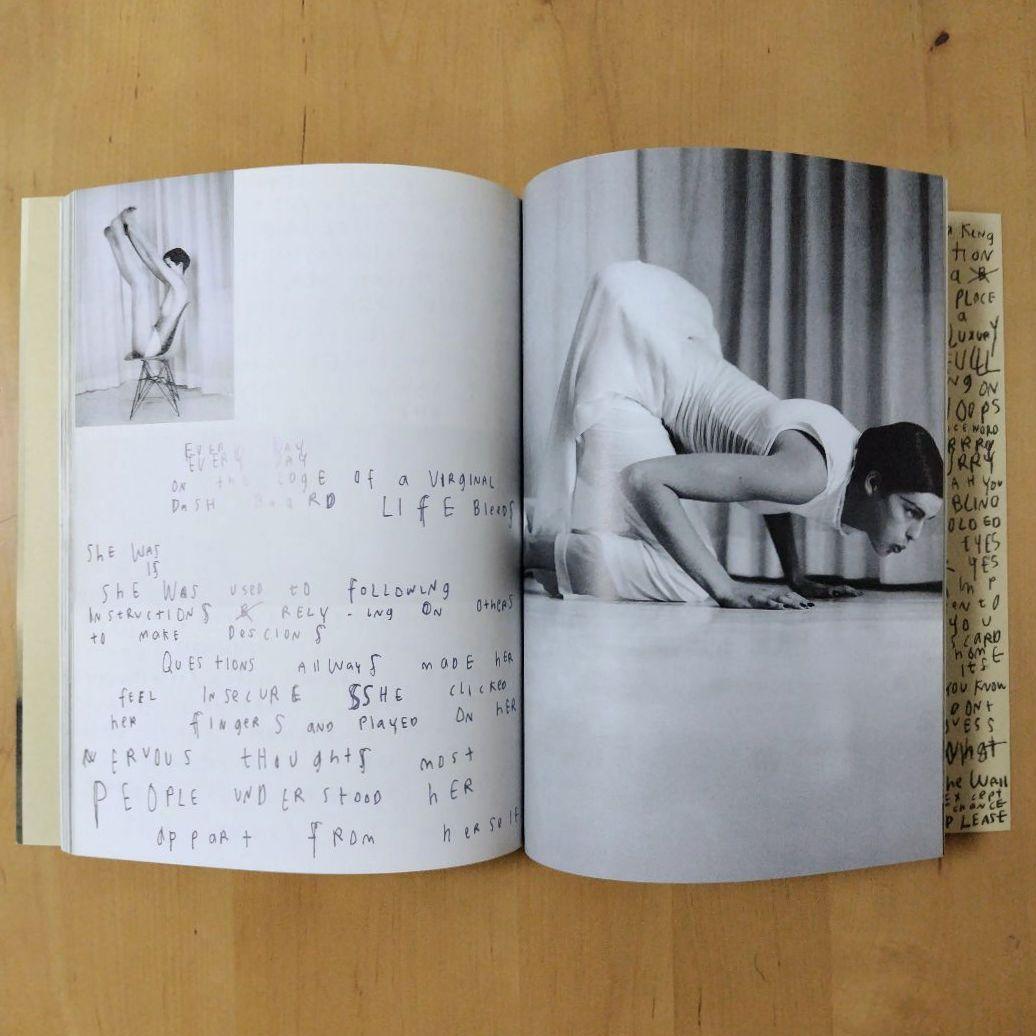 EVERY DAY
EVERY DAY
ON the EDGE OF a VIRGINAL
DaSH BoaRD LIfE BleedS
ShE WAS
IS
SHE WAS USED TO fOLLOWING
INSTRUCTIONS & RELY - ING ON OthERS
to MAKE DESCIONS
QUESTIONS AllWayS mADE hER
fEEL INSECURE SSHE clicKED
hER fINgERS AND PlAYED ON hER
NERVOUS tHOughtS most
PEOPLE UNDERSTOOD hER
appaRt fROm hERself
KING
tION
a &
PLACE
a
LUXURY
ON
OOPS
YOU
BLIND
OLDED
EYES
YES
YOU
hOmE
ItS
YOU KNOW
DONt
What
the Wall
EXCEPT
CHANCE
PLEASE